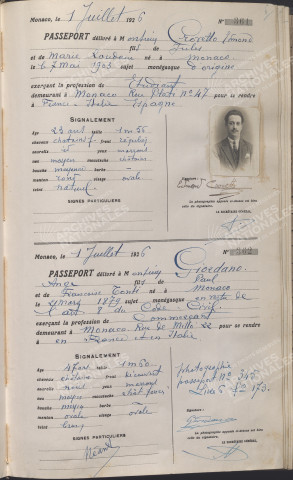 Monaco, le 1 Juillet 1926 N° 361
PASSEPORT délivré à M onsieur Crovetto Edmond
fils de Jules
et de Marie né à Monaco
le 7 Mai 1903 sujet monégasque d'origine
exerçant la profession de Etudiant
demeurant à Monaco Rue Plati N° 47 pour se rendre
France Italie Espagne
SIGNALEMENT
Age 23 ans taille 1m56
cheveux front
sourcils yeux
nez moyen moustache
bouche moyenne barbe
menton rond visage ovale
teint naturel
SIGNES PARTICULIERS
Signature :
La photographie apposée ci-dessus est bien
celle du signataire.
LE SECRÉTAIRE GÉNÉRAL,
Monaco, le 1 Juillet 1926 N° 362
PASSEPORT délivré à M onsieur Giordano
Ange fils de Paul
et de Francine Conti né à Monaco
le 4 mars 1879 sujet monégasque en vertu de
l'art. 8 du Code Civil
exerçant la profession de Commerçant
demeurant à Monaco Rue de Millo
en France & en Italie
SIGNALEMENT
Age 47 ans taille 1m60
cheveux front découvert
sourcils yeux
nez moyen moustache
bouche moyenne barbe
menton ovale visage ovale
teint brun
SIGNES PARTICULIERS
Néant
photographie
passeport N° 345
Livre 6
Signature :
La photographie apposée ci-dessus est bien
celle du signataire.
LE SECRÉTAIRE GÉNÉRAL,